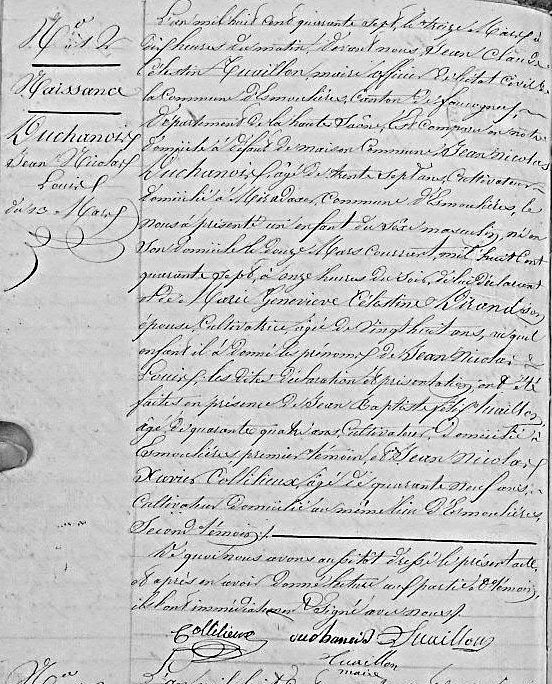 N° 12
Naissance
Duchanois
Jean Nicolas
Louis
du 13 Mars
L'an mil huit cent quarante sept, le treize Mars à
heures du matin, devant nous Jean Claude
Célestin Tuaillon, maire officier de l'état civil de
la Commune d'Esmoulières, Canton de faucogney,
Département de la haute Saône, Est Comparu en notre
domicile à défaut de maison Commune, Jean nicolas
Duchanois, âgé de trente sept ans, Cultivateur
domicilié à Commune d'Esmoulières, le
nous a présenté un enfant du sexe masculin, né en
son domicile le douze Mars courrant, mil huit cent
quarante sept, à onze heures du soir, de lui déclarant
et de Marie Geneviève Célestine son
épouse, Cultivatrice, âgée de vingt huit ans, auquel
enfant il a donné les prénoms de Jean Nicolas
Louis; les dites déclaration et présentation, ont été
faites en présence de Jean Baptiste Tuaillon,
âgé de quarante quatre ans, Cultivateur, domicilié à
Esmoulières, premier témoin, et Jean Nicolas
Xavier Collilieux, âgé de quarante neuf ans,
Cultivateur domicilié au même lieu d'Esmoulières,
Second témoin.
De quoi nous avons aussitôt dressé le présent acte,
et après en avoir donné lecture aux partie et témoins,
ils l'ont immédiatement Signé avec nous.
Collilieux duchanois Tuaillon
Tuaillon
maire